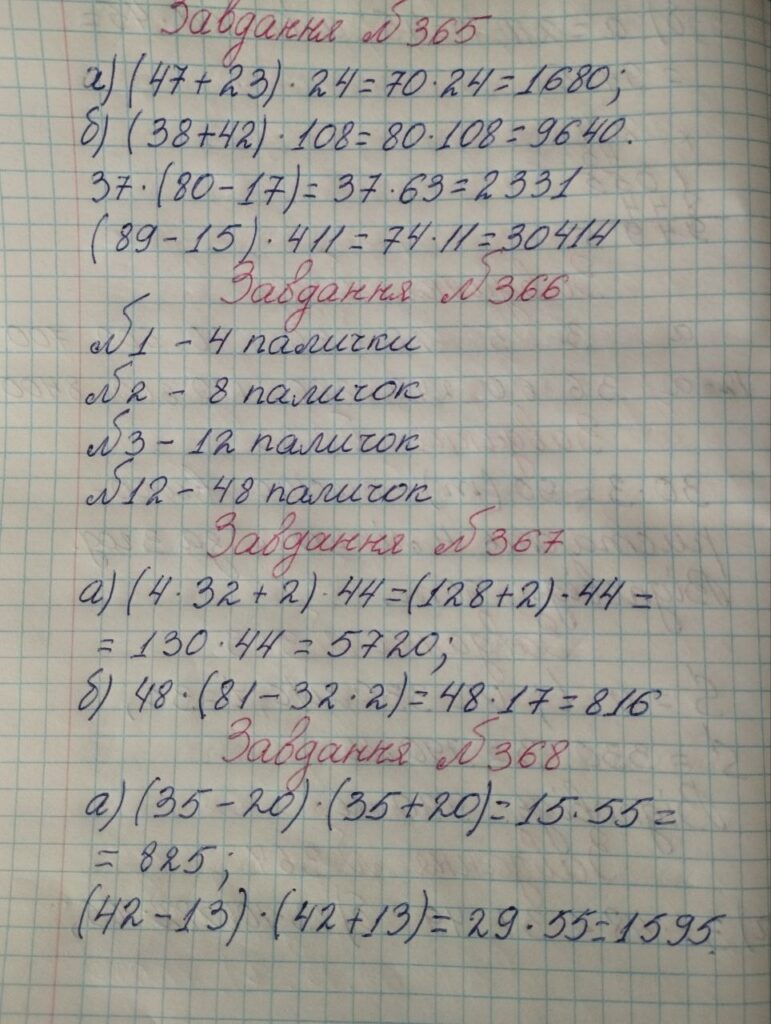 Завдання №365
а) (47+23)·24=70·24=1680;
б) (38+42)·108=80·108=9640.
37·(80-17)=37·63=2331
(89-15)·411=74·11=30414
Завдання №366
№1 - 4 палички
№2 - 8 паличок
№3 - 12 паличок
№12 - 48 паличок
Завдання №367
а) (4·32+2)·44=(128+2)·44=
=130·44=5720;
б) 48·(81-32·2)=48·17=816
Завдання №368
а) (35-20)·(35+20)=15·55=
=825;
(42-13)·(42+13)=29·55=1595.